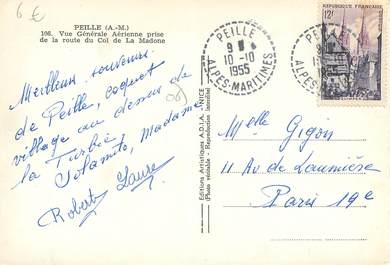 6 €
PEILLE (A.-M.)
106. Vue Générale Aérienne prise
de la route du Col de La Madone
Meilleurs souvenirs
de Peille, coquet
village au dessus de
la Turbie
Madame
Robert Laure
06
Editions Artistiques A.D.I.A. - NICE
(Photo véritable - Reproduction interdite)
PEILLE
9 H
10-10
1955
ALPES-MARITIMES
REPUBLIQUE FRANÇAISE
12F
PEILLE
ALPES-MARITIMES
Melle Gigon
11 Av de Laumière
Paris 19e